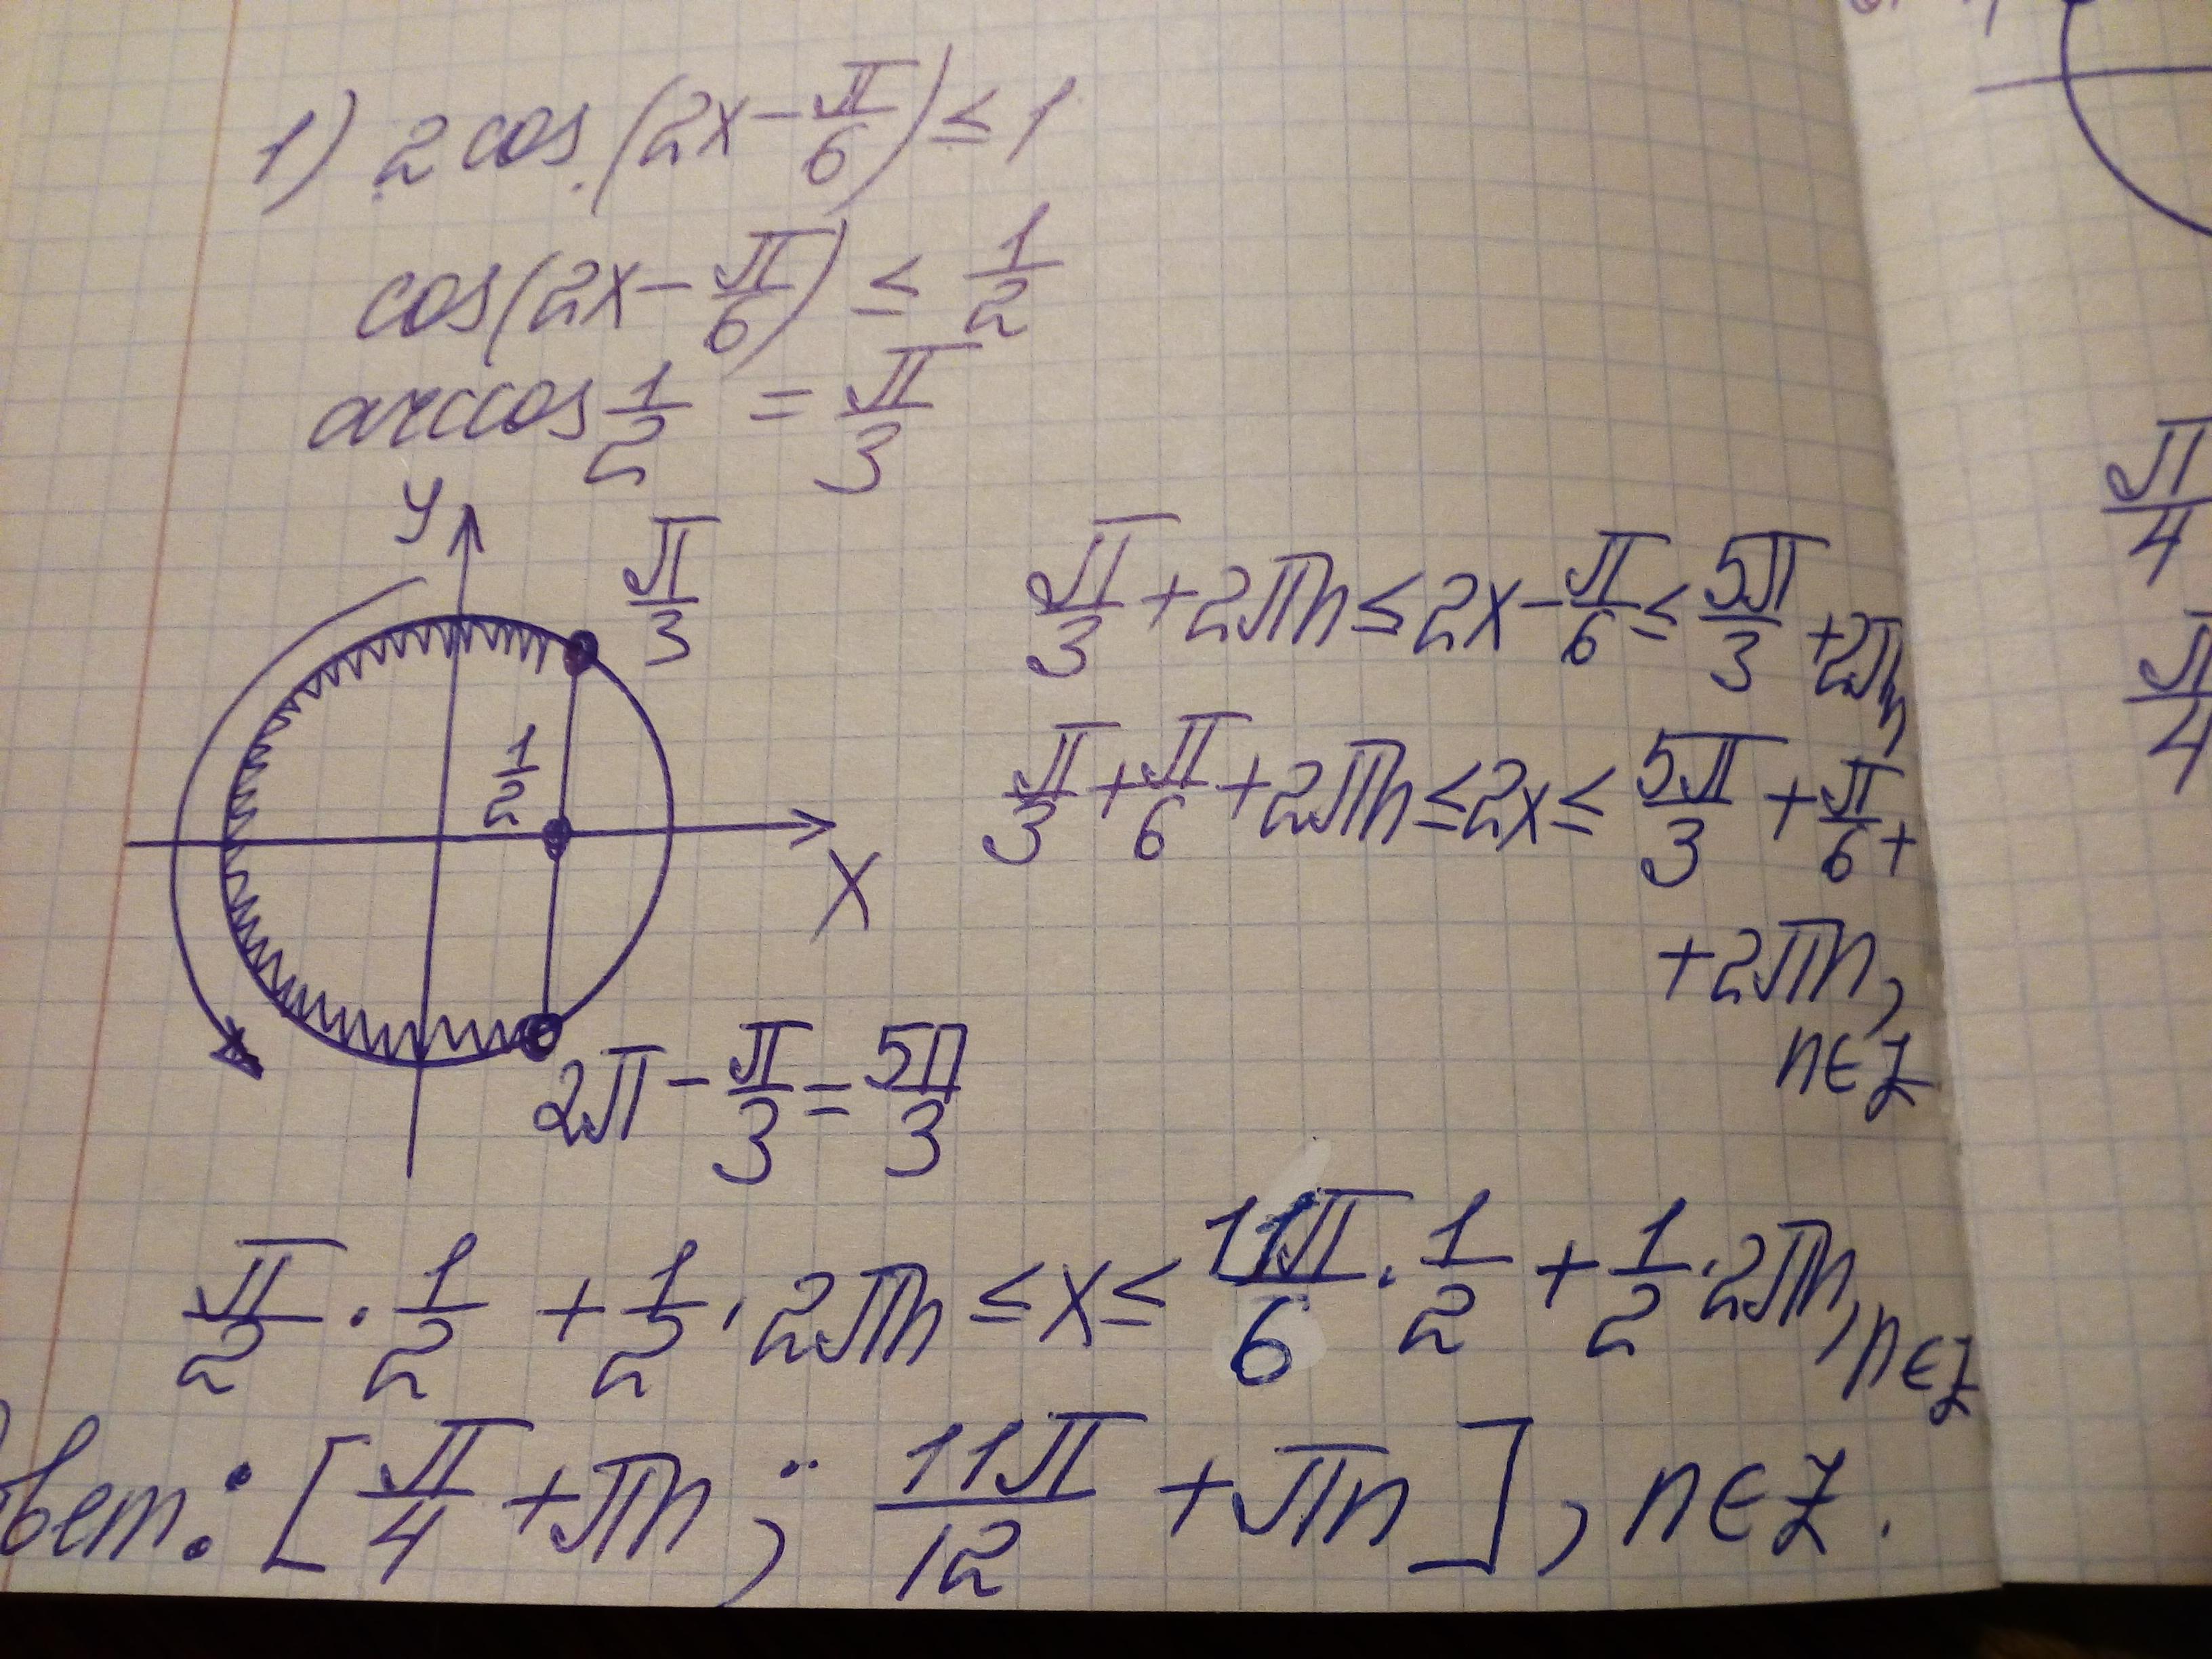 1) 2 cos (2x − π/6) ≤ 1
cos(2x − π/6) ≤ 1/2
arccos 1/2 = π/3
y
π/3
1/2
x
2π − π/3 = 5π/3
π/3 + 2πn ≤ 2x − π/6 ≤ 5π/3 + 2πn,
π/3 + π/6 + 2πn ≤ 2x ≤ 5π/3 + π/6 +
+ 2πn,
n∈Z
π/2 · 1/2 + 1/2 · 2πn ≤ x ≤ 11π/6 · 1/2 + 1/2 · 2πn, n∈Z
твет: [π/4 + πn; 11π/12 + πn], n∈Z.
π/4
π/4